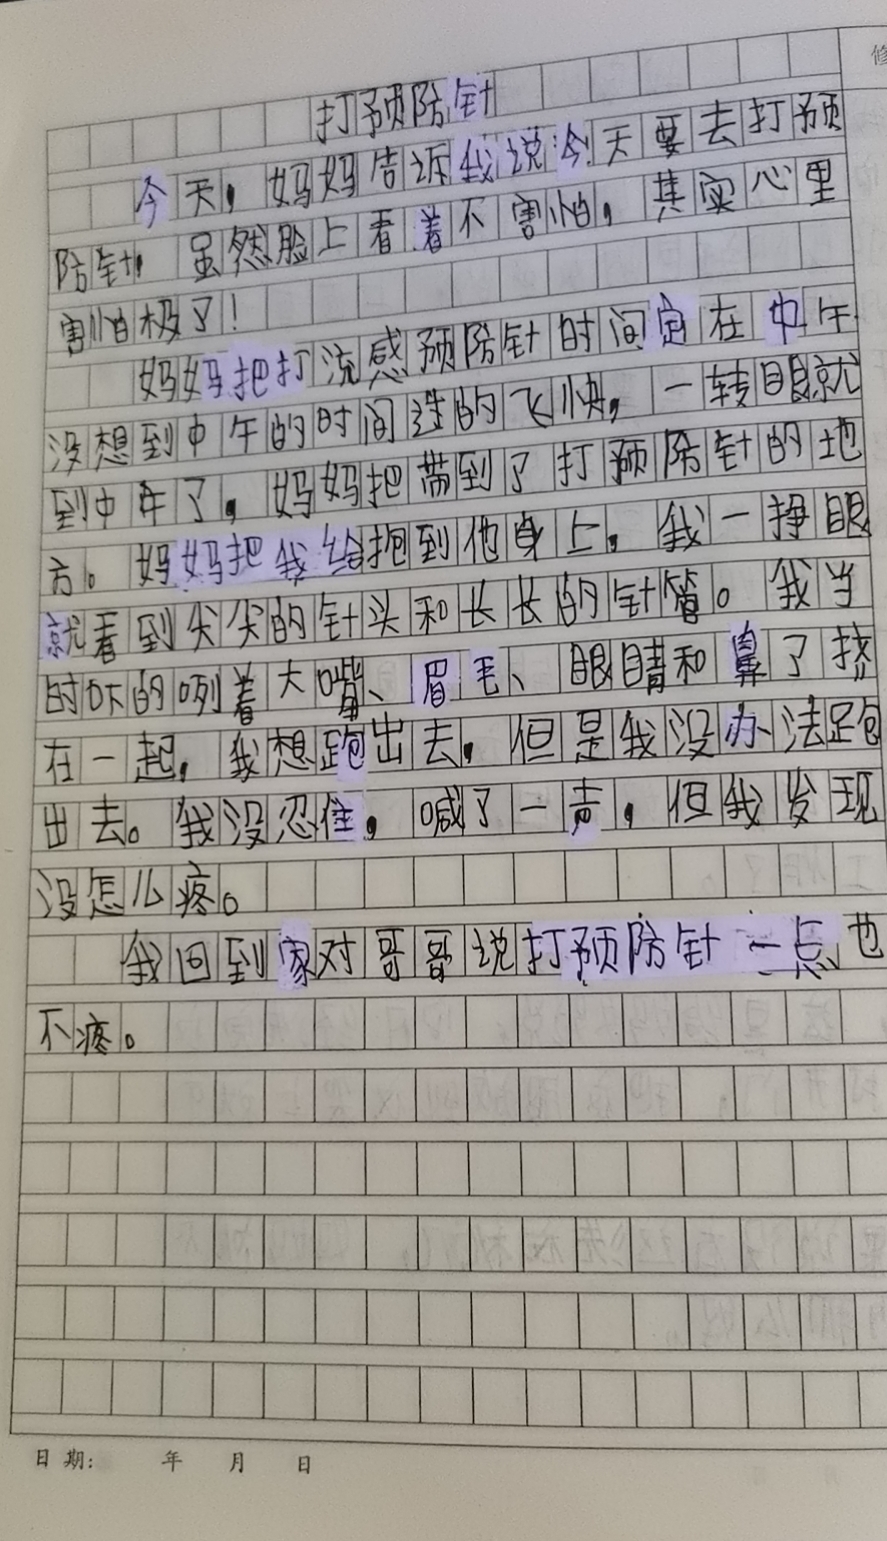 打预防针
今天，妈妈告诉我说今天要去打预
防针，虽然脸上看着不害怕，其实心里
害怕极了！
妈妈把打流感预防针时间定在中午
没想到中午的时间过的飞快，一转眼就
到中午了，妈妈把带到了打预防针的地
方。妈妈把我给抱到他身上，我一挣眼
就看到尖尖的针头和长长的针管。我当
时吓的咧着大嘴、眉毛、眼睛和鼻了挤
在一起，我想跑出去，但是我没办法跑
出去。我没忍住，喊了一声，但我发现
没怎么疼。
我回到家对哥哥说打预防针一点也
不疼。
日期: 年 月 日